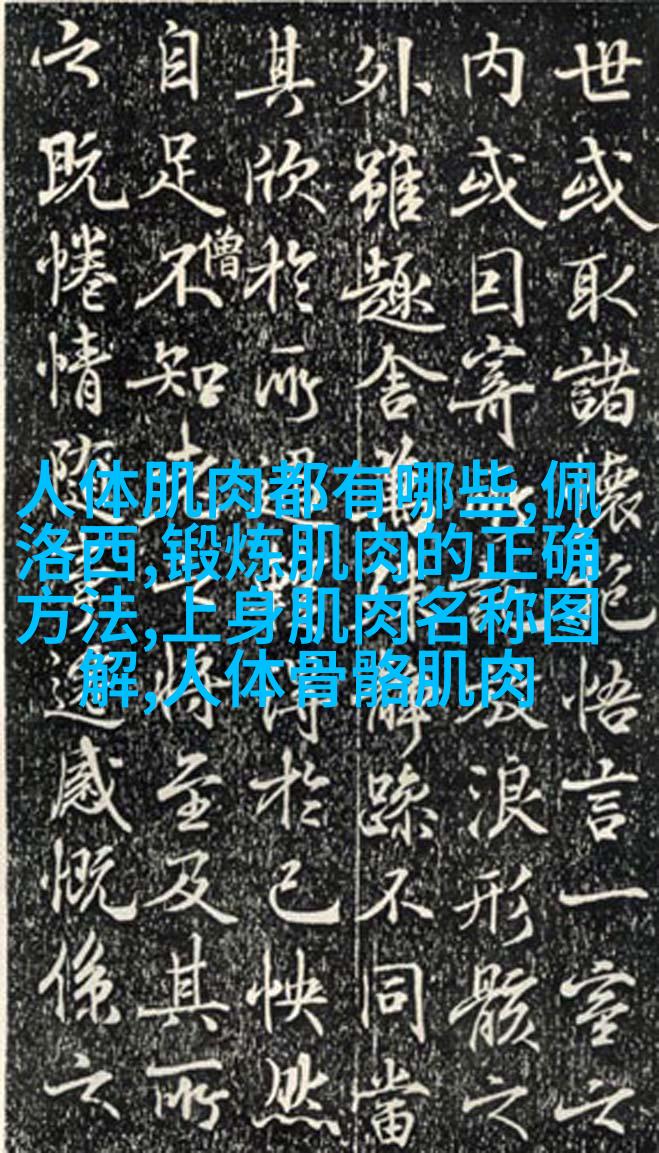 世或取諸懷抱悟言一室之
内或因寄所託放浪形骸之
外雖趣舍萬躁不同當
其欣於所遇得於己怏然
自足不知老之將至及其所
僧
之既惓情隨事遷感慨係之
人体肌肉都有哪些,佩
洛西,锻炼肌肉的正确
方法,上身肌肉名称图
解,人体骨骼肌肉